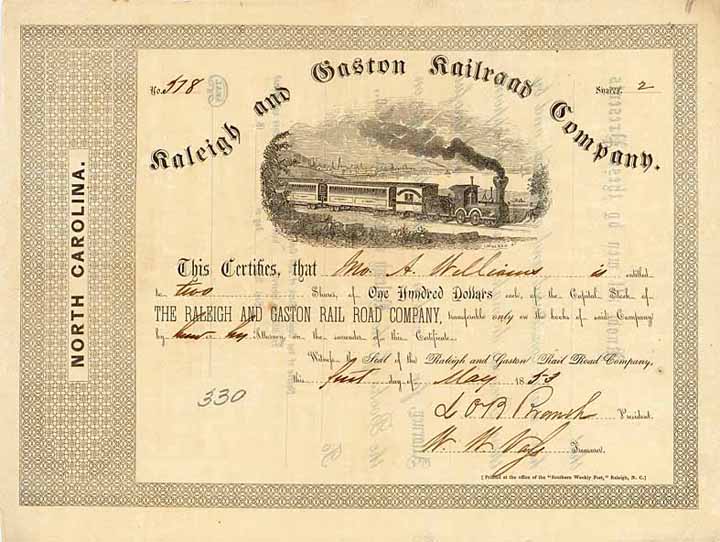 No. 578
Shares 2
Raleigh and Gaston Railroad Company.
NORTH CAROLINA.
This Certifies, that Jno. A. Williams is entitled
to two Shares, of One Hundred Dollars each, of the Capital Stock of
THE RALEIGH AND GASTON RAIL ROAD COMPANY, transferable only on the books of said Company
by Attorney on the surrender of this Certificate.
Witness the Seal of the Raleigh and Gaston Rail Road Company,
this first day of May 1853
L O B Branch President.
W. W. Vass Treasurer.
330
[Printed at the office of the "Southern Weekly Post," Raleigh, N. C.]